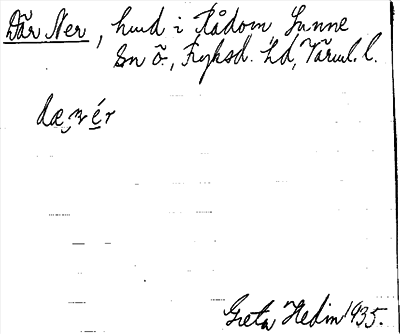 Där Ner, hmd i Rådom Sunne
sn ö., Fryksd. hd, Värml. l.
dæ, n é r
Greta Hedin 1935.